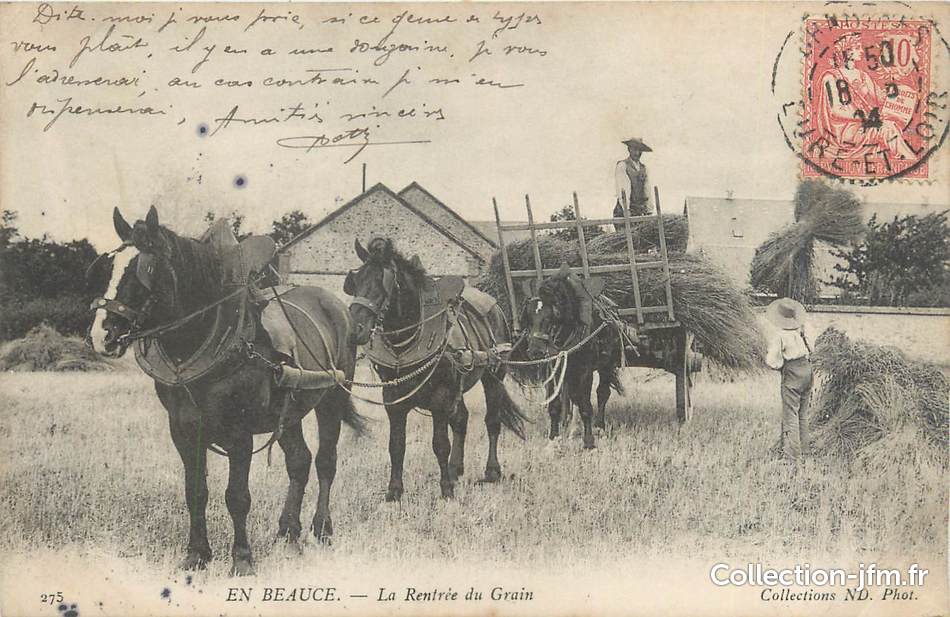 Dite. moi je vous prie, si ce genre et types
vous plait, il y en a une dougaine. Je vous
l'adresserai, au cas contraire je m'en
dispenserai. Amitiés sincères
POSTES
10
50
18
DROITS DE L'HOMME
RÉPUBLIQUE FRANÇAISE
EURE-ET-LOIR
275
EN BEAUCE. — La Rentrée du Grain
Collection-jfm.fr
Collections ND. Phot.